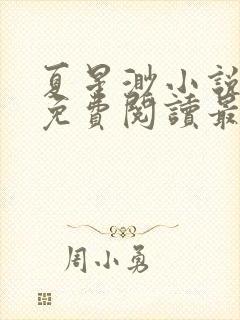 夏星渺小說
免費閱讀最
周小勇